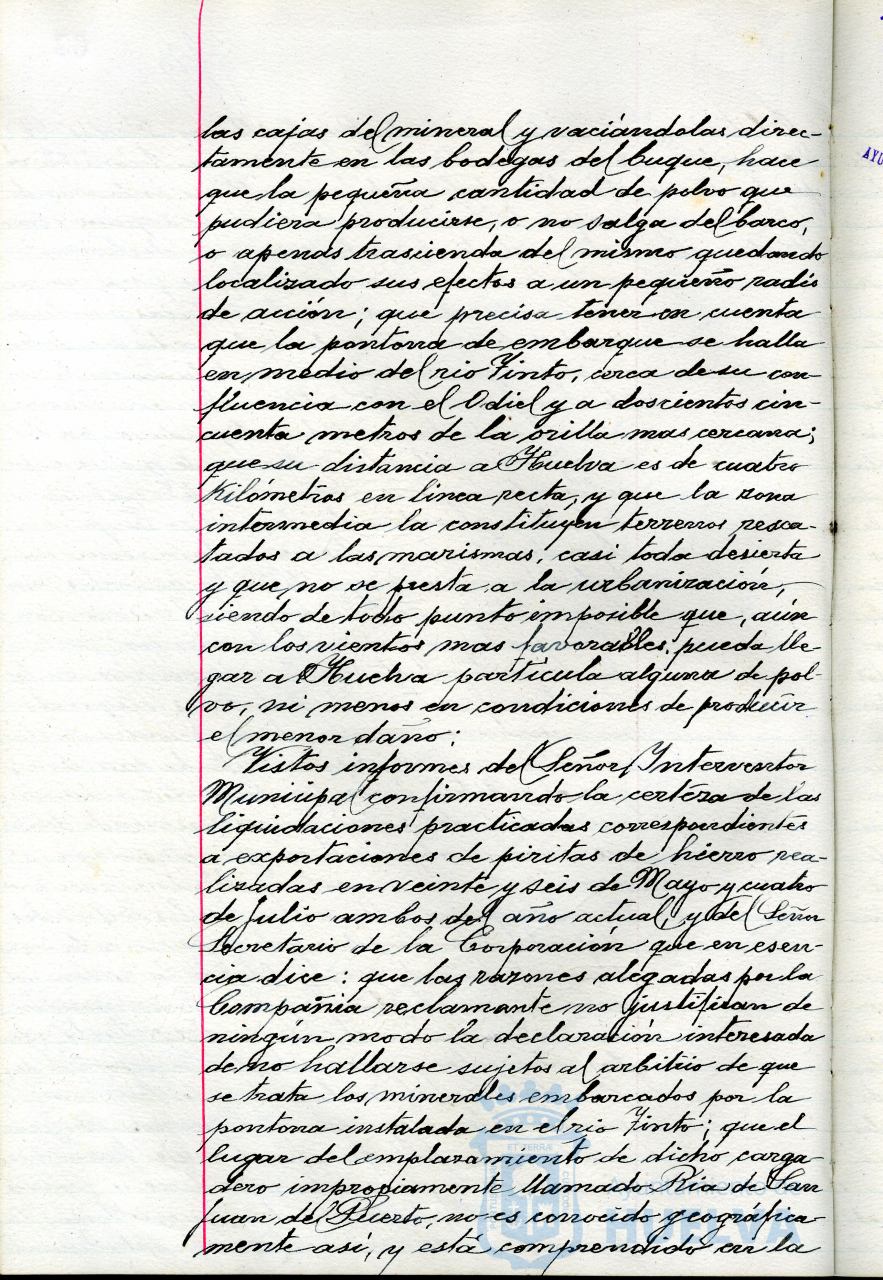 las cajas del mineral y vaciándolas direc-
tamente en las bodegas del buque, hace
que la pequeña cantidad de polvo que
pudiera producirse, o no salga del barco,
o apenas trascienda del mismo quedando
localizado sus efectos a un pequeño radio
de acción; que precisa tener en cuenta
que la pontona de embarque se halla
en medio del rio Tinto, cerca de su con-
fluencia con el Odiel y a doscientos cin-
cuenta metros de la orilla mas cercana;
que su distancia a Huelva es de cuatro
Kilómetros en linea recta, y que la zona
intermedia la constituyen terrenos resca-
tados a las marismas, casi toda desierta
y que no se presta a la urbanización,
siendo de todo punto imposible que, aún
con los vientos mas favorables, pueda lle-
gar a Huelva partícula alguna de pol-
vo, ni menos en condiciones de producir
el menor daño;
Vistos informes del Señor Interventor
Municipal confirmando la certeza de las
liquidaciones practicadas correspondientes
a exportaciones de piritas de hierro rea-
lizadas en veinte y seis de Mayo y cuatro
de Julio ambos del año actual, y del Señor
Secretario de la Corporación que en esen-
cia dice: que las razones alegadas por la
Compañia reclamante no justifican de
ningún modo la declaración interesada
de no hallarse sujetos al arbitrio de que
se trata los minerales embarcados por la
pontona instalada en el rio Tinto; que el
lugar del emplazamiento de dicho carga-
dero impropiamente llamado Ria de San
Juan del Puerto, no es conocido geográfica-
mente así, y está comprendido en la
AYU
ET TERRÆ
Ayuntamiento de
HUELVA